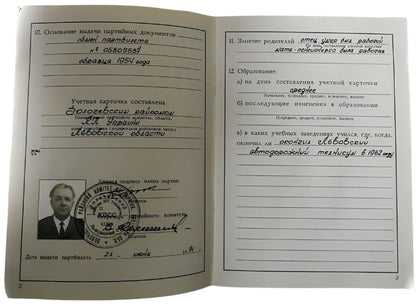 10. Основание выдачи партийных документов
обмен партбилета
№ 05805551
образца 1954 года
Учетная карточка составлена
Золочевским райкомом
КП Украины
Львовской области
Личная подпись члена партии
Дата выдачи партбилета 21 июня
2
11. Занятие родителей отец умер был рабочий
мать-пенсионерка была рабочая
12. Образование:
а) на день составления учетной карточки
среднее
Начальное, н/среднее, среднее, н/высшее, высшее
б) последующие изменения в образовании
Н/среднее, среднее, н/высшее, высшее
в) в каких учебных заведениях учился, где, когда,
окончил ли окончил Львовский
автодорожный техникум в 1962 году
3